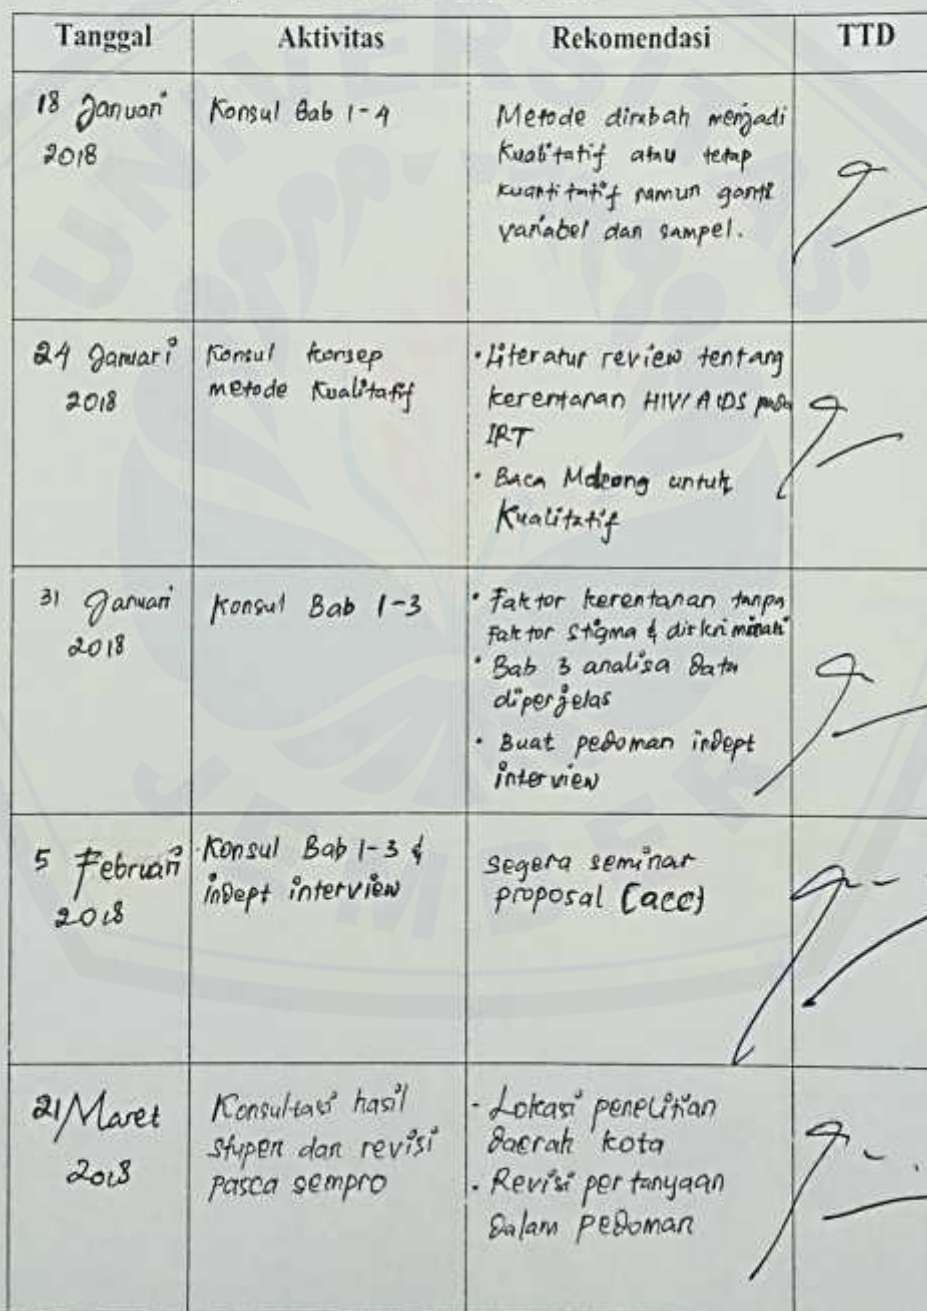 Tanggal Aktivitas Rekomendasi TTD
18 Januari
2018
Konsul Bab 1-4
Metode dirubah menjadi
Kualitatif atau tetap
kuantitatif namun ganti
variabel dan sampel.
24 Januari
2018
Konsul konsep
metode Kualitatif
• Literatur review tentang
kerentanan HIV/AIDS pada
IRT
• Baca Moleong untuk
Kualitatif
31 Januari
2018
Konsul Bab 1-3
• Faktor kerentanan tanpa
faktor stigma & diskriminasi
• Bab 3 analisa data
diperjelas
• Buat pedoman indept
interview
5 Februari
2018
Konsul Bab 1-3 &
indept interview
Segera seminar
proposal (acc)
21 Maret
2018
Konsultasi hasil
stupen dan revisi
pasca sempro
- Lokasi penelitian
daerah kota
- Revisi pertanyaan
dalam pedoman
UNIVERSITAS
JEMBER